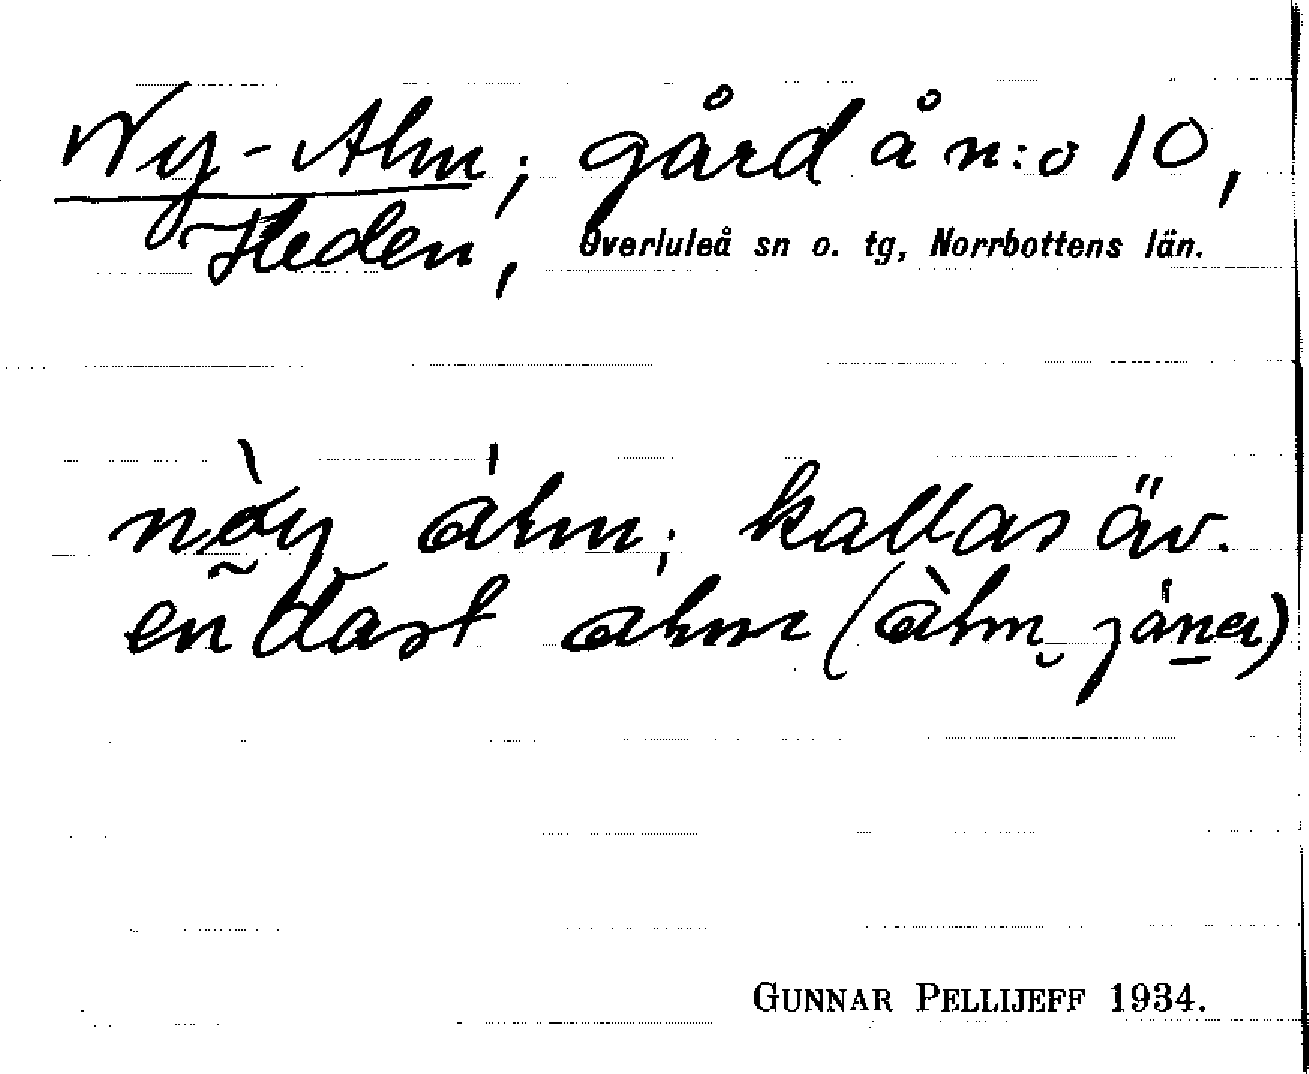 Ny-Alm; gård å n:o 10,
Heden, Överluleå sn o. tg, Norrbottens län.
nø̀y álm; kallas äv.
endast alm (àlm jánα)
GUNNAR PELLIJEFF 1934.